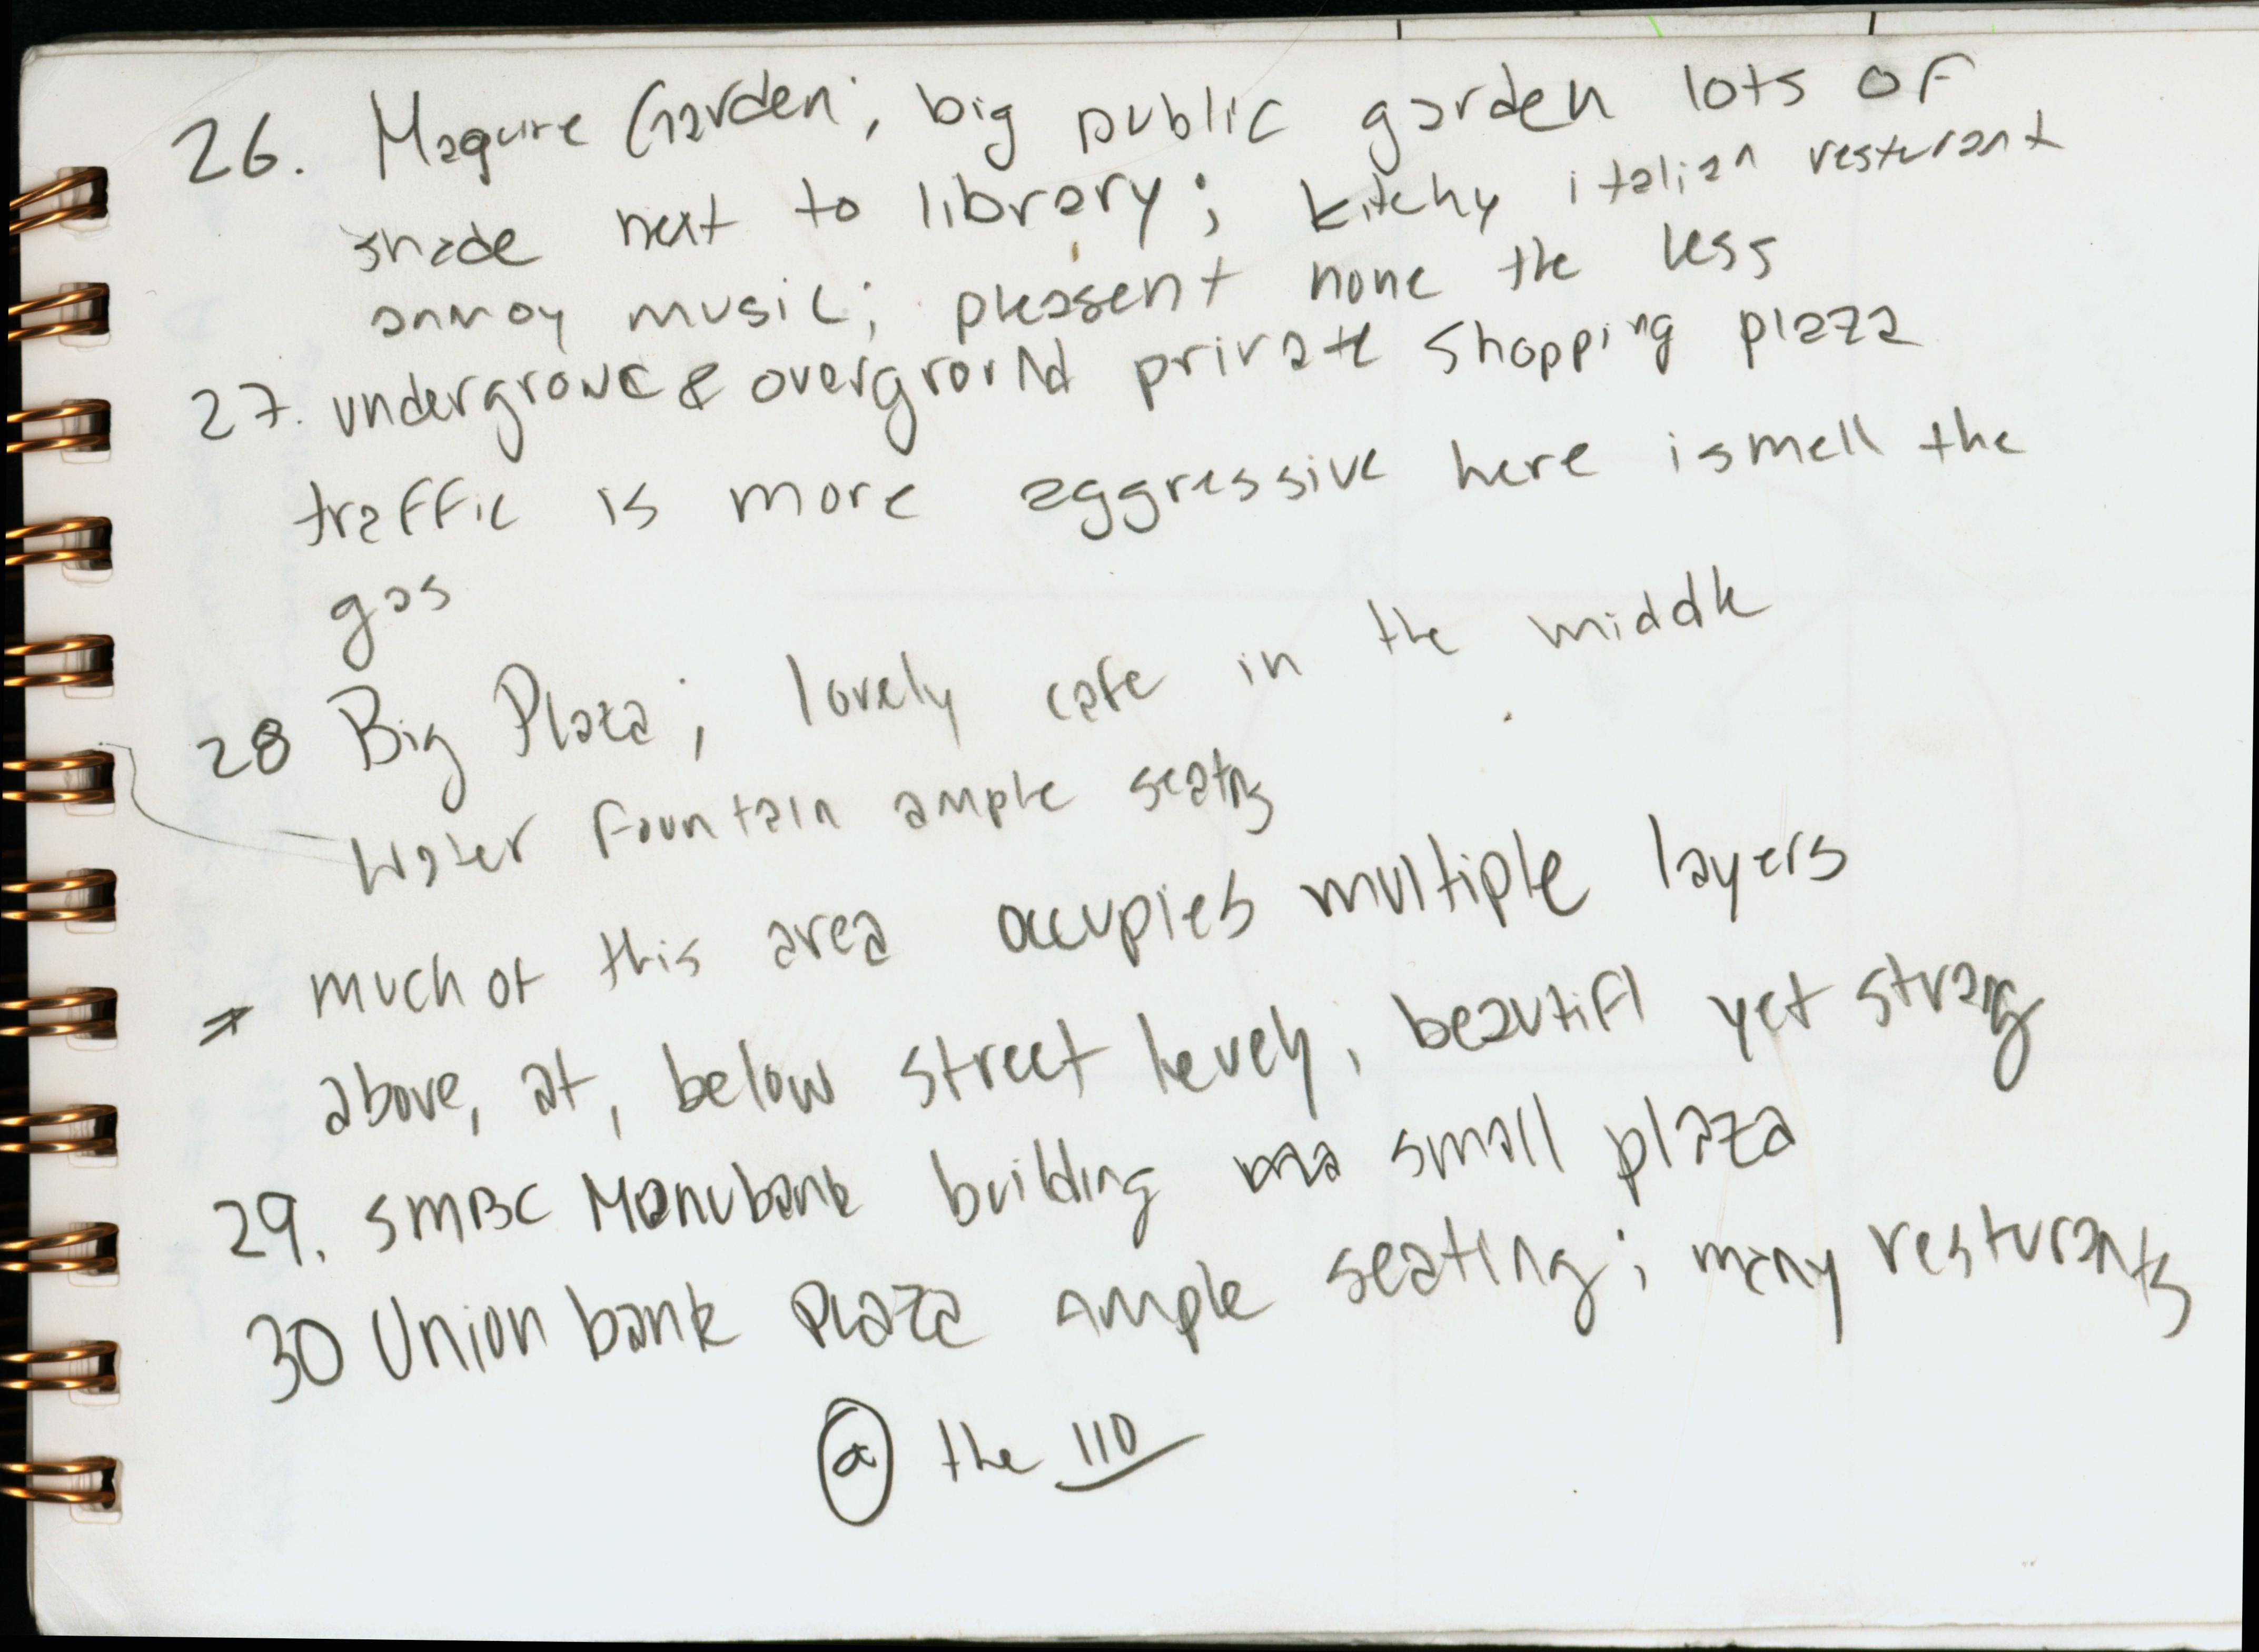 26. Maguire Garden; big public garden lots of
shade next to library; kitchy italian resturant
annoy music; pleasent none the less
27. underground & overground private shopping plaza
traffic is more aggressive here ismell the
gas
28 Big Plaza; lovely cafe in the middle
Water fountain ample seating
⇒ much of this area occupies multiple layers
above, at, below street levely; beautifl yet strang
29. SMBC Manubank building small plaza
30 Union bank Plaza ample seating; many resturants
@ the 110